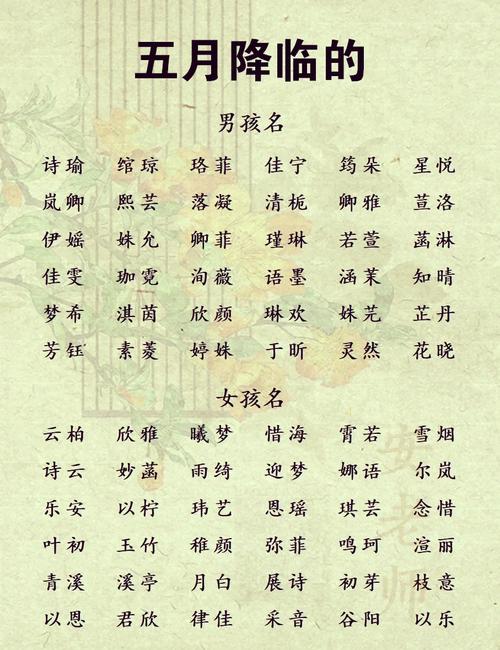 五月降临的
男孩名
诗瑜 绾琼 珞菲 佳宁 筠朵 星悦
岚卿 熙芸 落凝 清栀 卿雅 荁洛
伊媱 姝允 卿菲 瑾琳 若萱 菡淋
佳雯 珈霓 洵薇 语墨 涵茉 知晴
梦希 淇茵 欣颜 琳欢 姝芫 芷丹
芳钰 素菱 婷姝 于昕 灵然 花晓
女孩名
云柏 欣雅 曦梦 惜海 霄若 雪烟
诗云 妙菡 雨绮 迎梦 娜语 尔岚
乐安 以柠 玮艺 恩瑶 琪芸 念惜
叶初 玉竹 稚颜 弥菲 鸣珂 渲丽
青溪 溪亭 月白 展诗 初芽 枝意
以恩 君欣 律佳 采音 谷阳 以乐
安老师